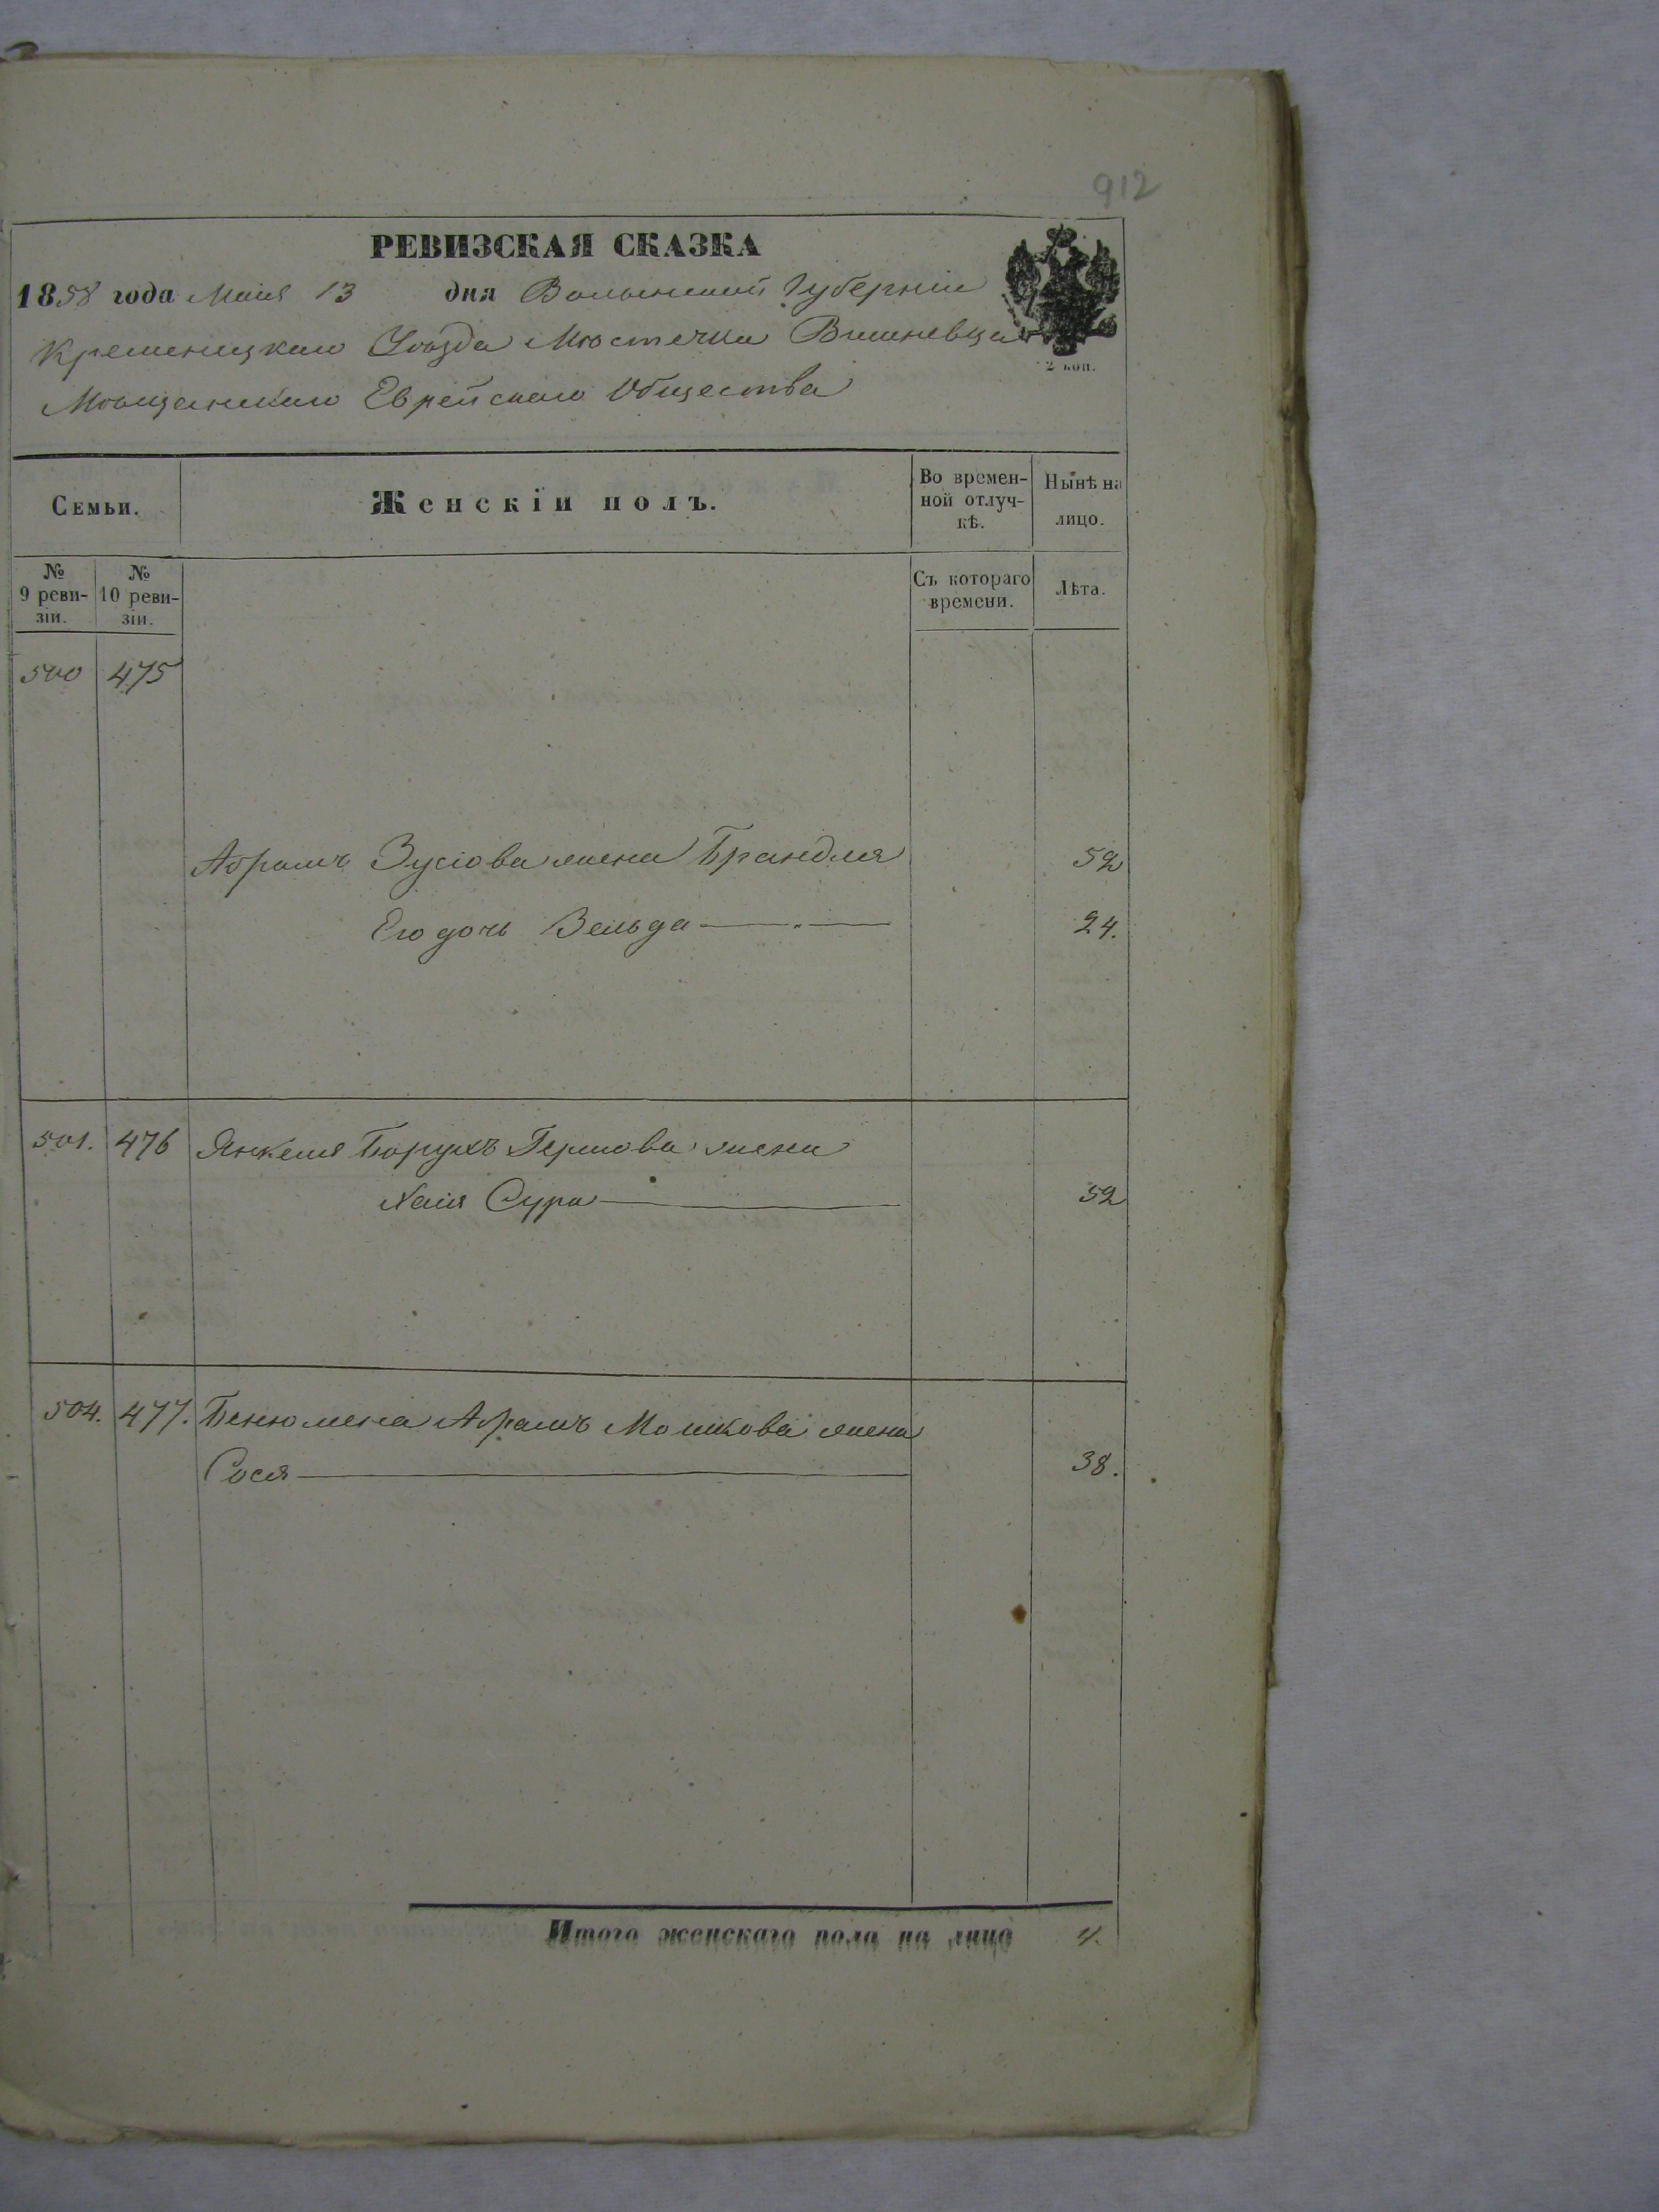 912
РЕВИЗСКАЯ СКАЗКА
1858 года Маія 13 дня Волынской Губерніи
Кременецкаго Уѣзда Мѣстечка Вишневца
2 коп.
Мѣщанскаго Еврейскаго Общества
Семьи. Женскій полъ. Во времен-ной отлуч-кѣ. Нынѣ на лицо.
№ 9 реви-зіи. № 10 реви-зіи. Съ котораго времени. Лѣта.
500 475
Абрамъ Зусіова жена Брандля 52
Его дочь Вельда 24.
501. 476 Янкеля Борухъ Гершова жена
Хаія Сура 52
504. 477. Бенюмена Абрамъ Мошкова жена
Сося 38.
Итого женскаго пола на лицо 4.